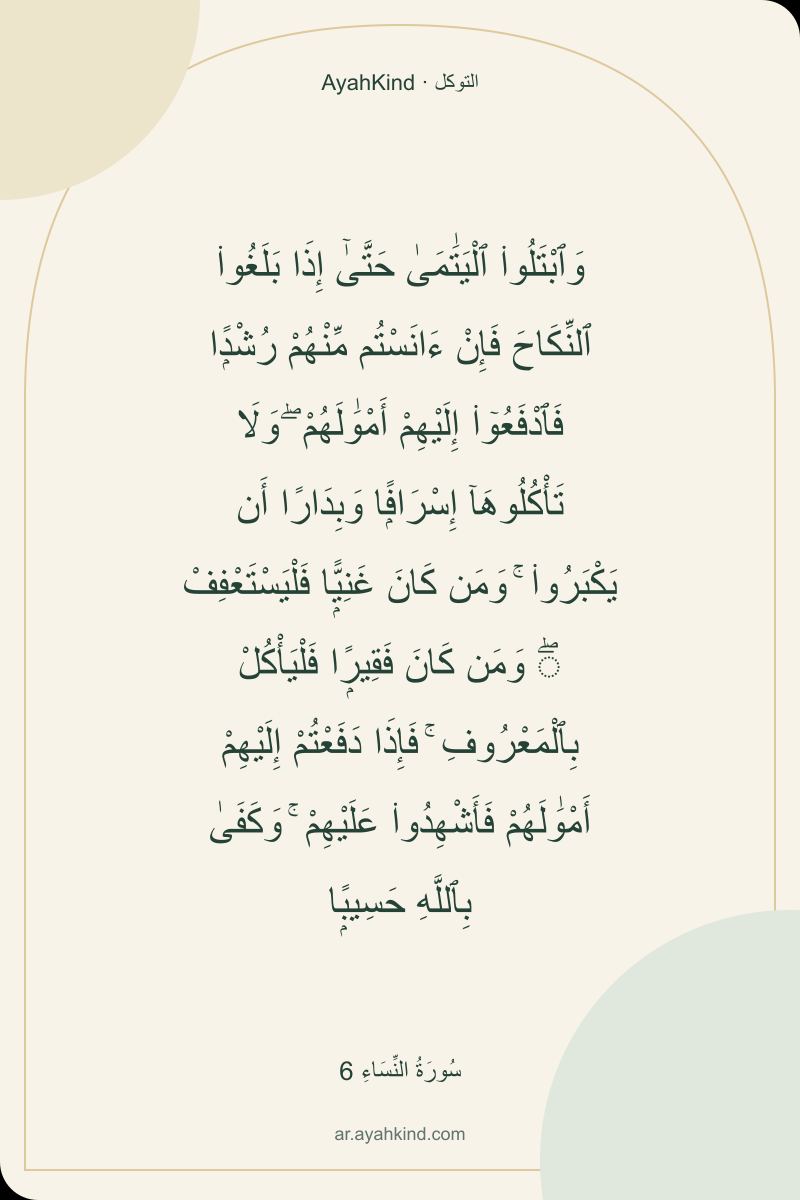 AyahKind · التوكل
وَٱبْتَلُوا۟ ٱلْيَتَـٰمَىٰ حَتَّىٰٓ إِذَا بَلَغُوا۟
ٱلنِّكَاحَ فَإِنْ ءَانَسْتُم مِّنْهُمْ رُشْدًۭا
فَٱدْفَعُوٓا۟ إِلَيْهِمْ أَمْوَٰلَهُمْ ۖ وَلَا
تَأْكُلُوهَآ إِسْرَافًۭا وَبِدَارًا أَن
يَكْبَرُوا۟ ۚ وَمَن كَانَ غَنِيًّۭا فَلْيَسْتَعْفِفْ
ۖ وَمَن كَانَ فَقِيرًۭا فَلْيَأْكُلْ
بِٱلْمَعْرُوفِ ۚ فَإِذَا دَفَعْتُمْ إِلَيْهِمْ
أَمْوَٰلَهُمْ فَأَشْهِدُوا۟ عَلَيْهِمْ ۚ وَكَفَىٰ
بِٱللَّهِ حَسِيبًۭا
سُورَةُ النِّسَاءِ 6
ar.ayahkind.com